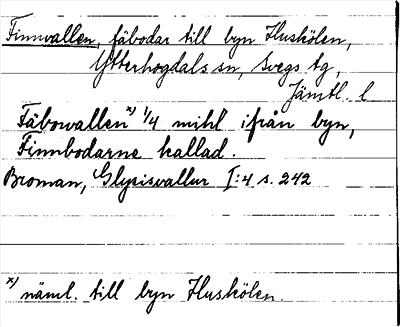 Finnvallen, fäbodar till byn Huskölen,
Ytterhogdals sn, Svegs tg,
Jämtl. l
Fäbowallen x) 1/4 mihl ifrån byn,
Finnbodarne kallad.
Broman, Glysisvallur I:4 s. 242
x) näml. till byn Huskölen.